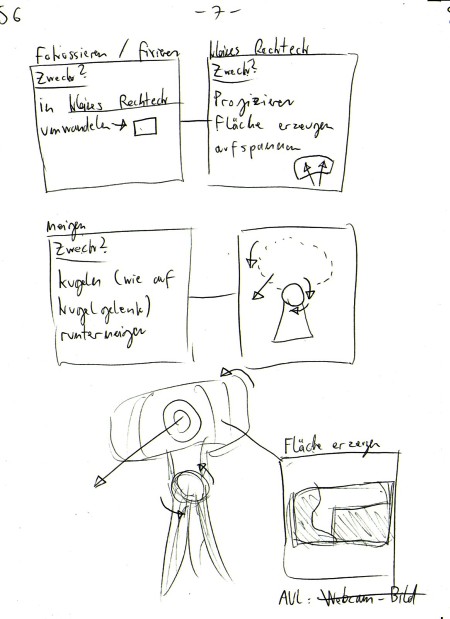 - 7 -
/ fixieren
Zweck?
in kleines Rechteck
umwandeln →
kleines Rechteck
Zweck?
Projizieren
Fläche erzeugen
aufspannen
neigen
Zweck?
kugeln (wie auf
Kugelgelenk)
runterneigen
Fläche erzeugen
AVL: Webcam-Bild